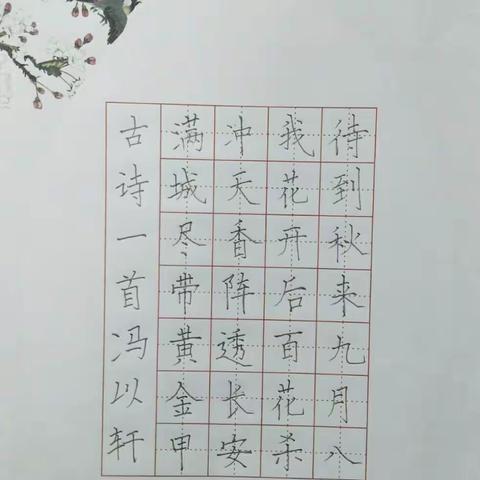 待到秋来九月八
我花开后百花杀
冲天香阵透长安
满城尽带黄金甲
古诗一首冯以轩